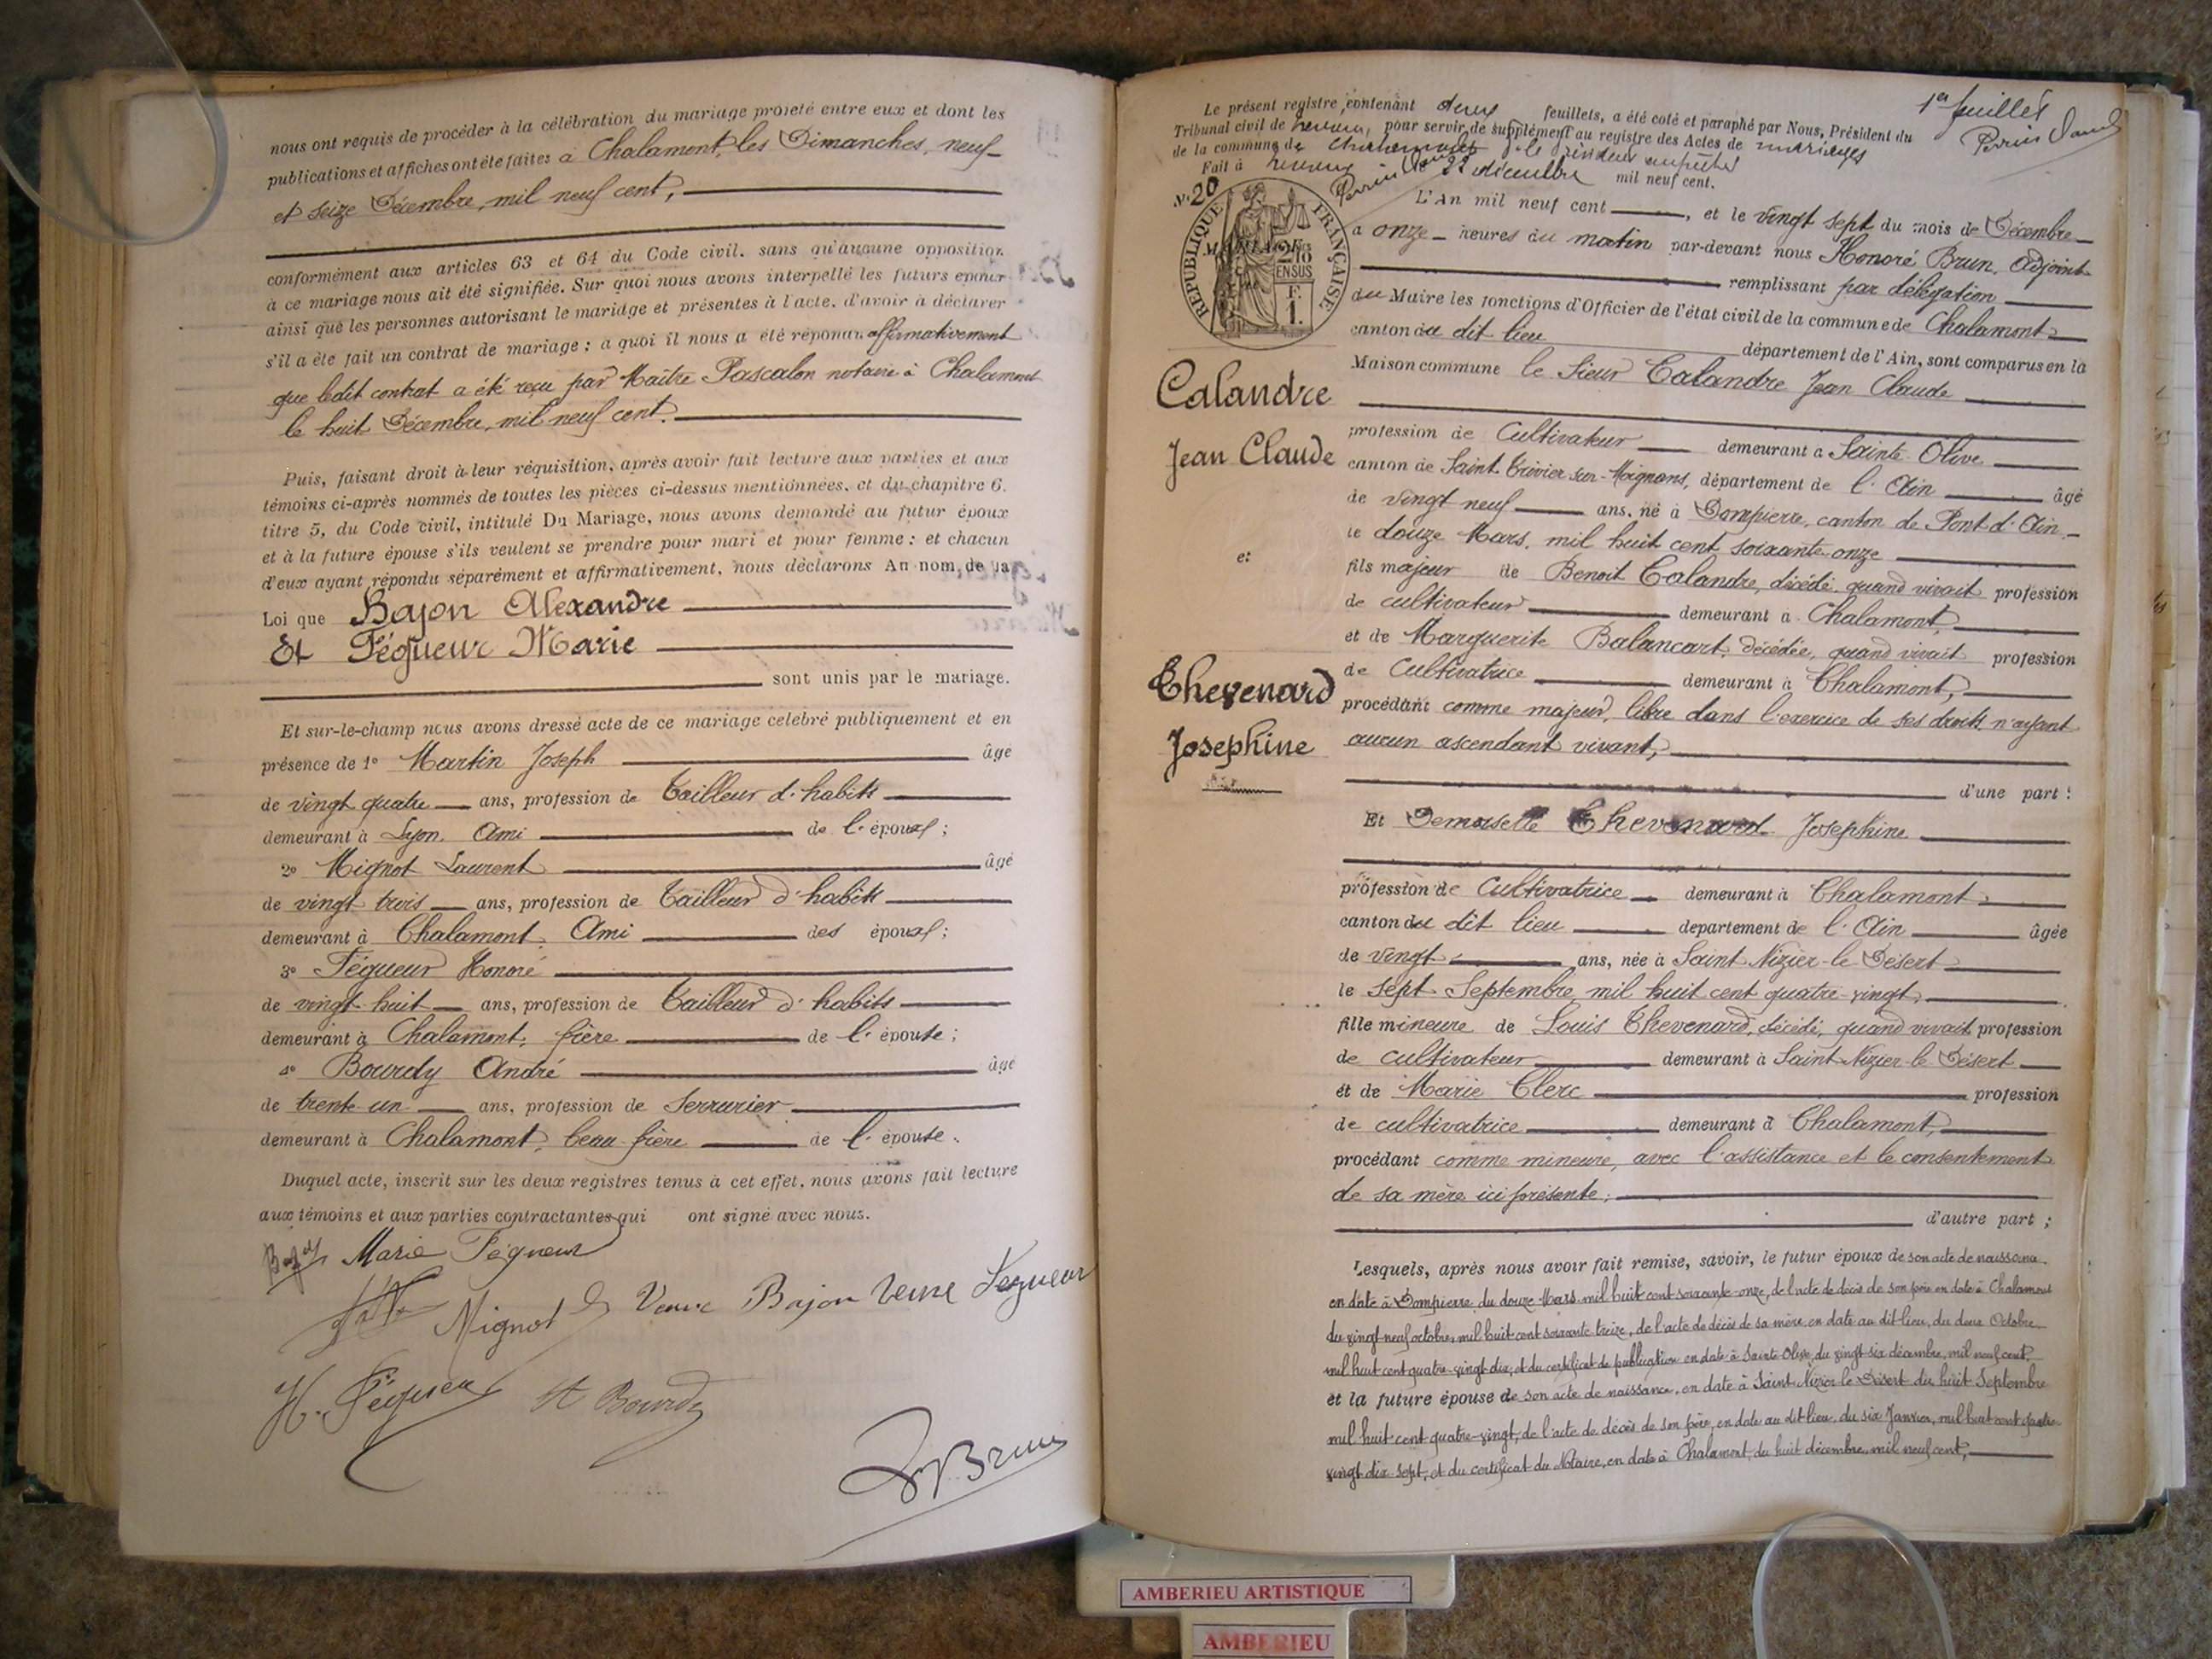 nous ont requis de procéder à la célébration du mariage projeté entre eux et dont les
publications et affiches ont été faites à Chalamont, les Dimanches, neuf
et seize Décembre, mil neuf cent,
conformément aux articles 63 et 64 du Code civil, sans qu'aucune opposition
à ce mariage nous ait été signifiée. Sur quoi nous avons interpellé les futurs époux
ainsi que les personnes autorisant le mariage et présentes à l'acte, d'avoir à déclarer
s'il a été fait un contrat de mariage ; à quoi il nous a été répondu affirmativement
que ledit contrat a été reçu par Maître Pascalon notaire à Chalamont
le huit Décembre, mil neuf cent.
Puis, faisant droit à leur réquisition, après avoir fait lecture aux parties et aux
témoins ci-après nommés de toutes les pièces ci-dessus mentionnées, et du chapitre 6,
titre 5, du Code civil, intitulé Du Mariage, nous avons demandé au futur époux
et à la future épouse s'ils veulent se prendre pour mari et pour femme ; et chacun
d'eux ayant répondu séparément et affirmativement, nous déclarons Au nom de la
Loi que Bajon Alexandre
Et Fégueur Marie
sont unis par le mariage.
Et sur-le-champ nous avons dressé acte de ce mariage célébré publiquement et en
présence de 1° Martin Joseph âgé
de vingt quatre ans, profession de Tailleur d'habits
demeurant à Lyon, Ami de l'époux ;
2° Mignot Laurent âgé
de vingt trois ans, profession de Tailleur d'habits
demeurant à Chalamont, Ami des époux ;
3° Fégueur Honoré
de vingt-huit ans, profession de Tailleur d'habits
demeurant à Chalamont, frère de l'épouse ;
4° Bourdy André âgé
de trente-un ans, profession de Serrurier
demeurant à Chalamont, beau-frère de l'épouse.
Duquel acte, inscrit sur les deux registres tenus à cet effet, nous avons fait lecture
aux témoins et aux parties contractantes qui ont signé avec nous.
Marie Fégueur
Mignot Veuve Bajon Veuve Fegueur
H. Fégueur A Bourdy
Brun
1er feuillet
Le présent registre, contenant deux feuillets, a été coté et paraphé par Nous, Président du
Tribunal civil de Trévoux, pour servir de supplément au registre des Actes de mariages
de la commune de Chalamont, le Président empêché
Fait à Trévoux le 22 décembre mil neuf cent.
N° 20
RÉPUBLIQUE FRANÇAISE
EN SUS
F.
1.
L'An mil neuf cent, et le vingt sept du mois de Décembre
à onze heures du matin par-devant nous Honoré Brun, Adjoint
remplissant par délégation
du Maire les fonctions d'Officier de l'état civil de la commune de Chalamont
canton du dit lieu département de l'Ain, sont comparus en la
Maison commune le Sieur Calandre Jean Claude
Calandre
Jean Claude
et
Thevenard
Josephine
profession de Cultivateur demeurant à Sainte-Olive
canton de Saint-Trivier-sur-Moignans, département de l'Ain âgé
de vingt neuf ans, né à Dompierre, canton de Pont-d'Ain
le douze Mars, mil huit cent soixante-onze
fils majeur de Benoit Calandre, décédé, quand vivait profession
de cultivateur demeurant à Chalamont,
et de Marguerite Balancart, décédée, quand vivait profession
de Cultivatrice demeurant à Chalamont,
procédant comme majeur, libre dans l'exercice de ses droits n'ayant
aucun ascendant vivant,
d'une part :
Et Demoiselle Thevenard Josephine
profession de Cultivatrice demeurant à Chalamont
canton du dit lieu département de l'Ain âgée
de vingt ans, née à Saint Nizier-le-Désert
le sept Septembre, mil huit cent quatre-vingt,
fille mineure de Louis Thevenard, décédé, quand vivait profession
de cultivateur demeurant à Saint-Nizier-le-Désert
et de Marie Clerc profession
de cultivatrice demeurant à Chalamont,
procédant comme mineure, avec l'assistance et le consentement
de sa mère ici présente ;
d'autre part ;
Lesquels, après nous avoir fait remise, savoir, le futur époux de son acte de naissance
en date à Dompierre, du douze Mars mil huit cent soixante-onze, de l'acte de décès de son père en date à Chalamont
du vingt-neuf octobre, mil huit cent soixante treize, de l'acte de décès de sa mère, en date au dit-lieu, du deux Octobre
mil huit cent quatre-vingt-dix, et du certificat de publication en date à Sainte-Olive, du vingt-six décembre, mil neuf cent,
et la future épouse de son acte de naissance, en date à Saint-Nizier-le-Désert du huit Septembre
mil huit cent quatre-vingt, de l'acte de décès de son père, en date au dit lieu, du six Janvier, mil huit cent quatre
vingt-dix-sept, et du certificat du Notaire, en date à Chalamont, du huit décembre, mil neuf cent,
AMBERIEU ARTISTIQUE
AMBERIEU